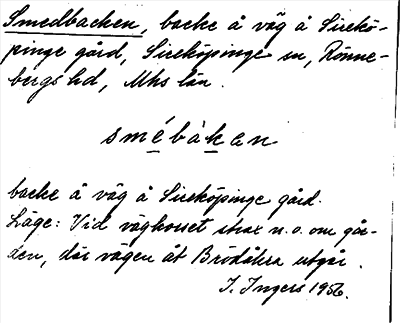 Smedbacken, backe å väg å Sirekö-
pinge gård, Sireköpinge sn, Rönne-
bergs hd, Mhs län.
smébàkan
backe å väg å Sireköpinge gård.
Läge: Vid väghuset strax n.o. om går-
den, där vägen åt Brödåkra utgår.
I. Ingers 1956.